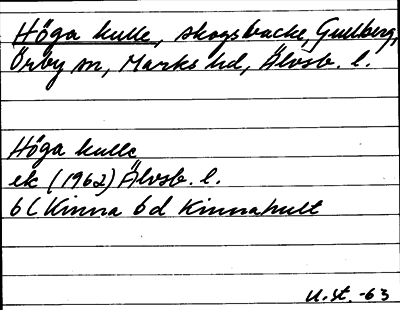 Höga kulle, skogsbacke, Gullberg,
Örby sn, Marks hd, Älvsb. l.
Höga kulle
ek (1962) Älvsb. l.
6c Kinna 6d Kinnahult
U.St. -63